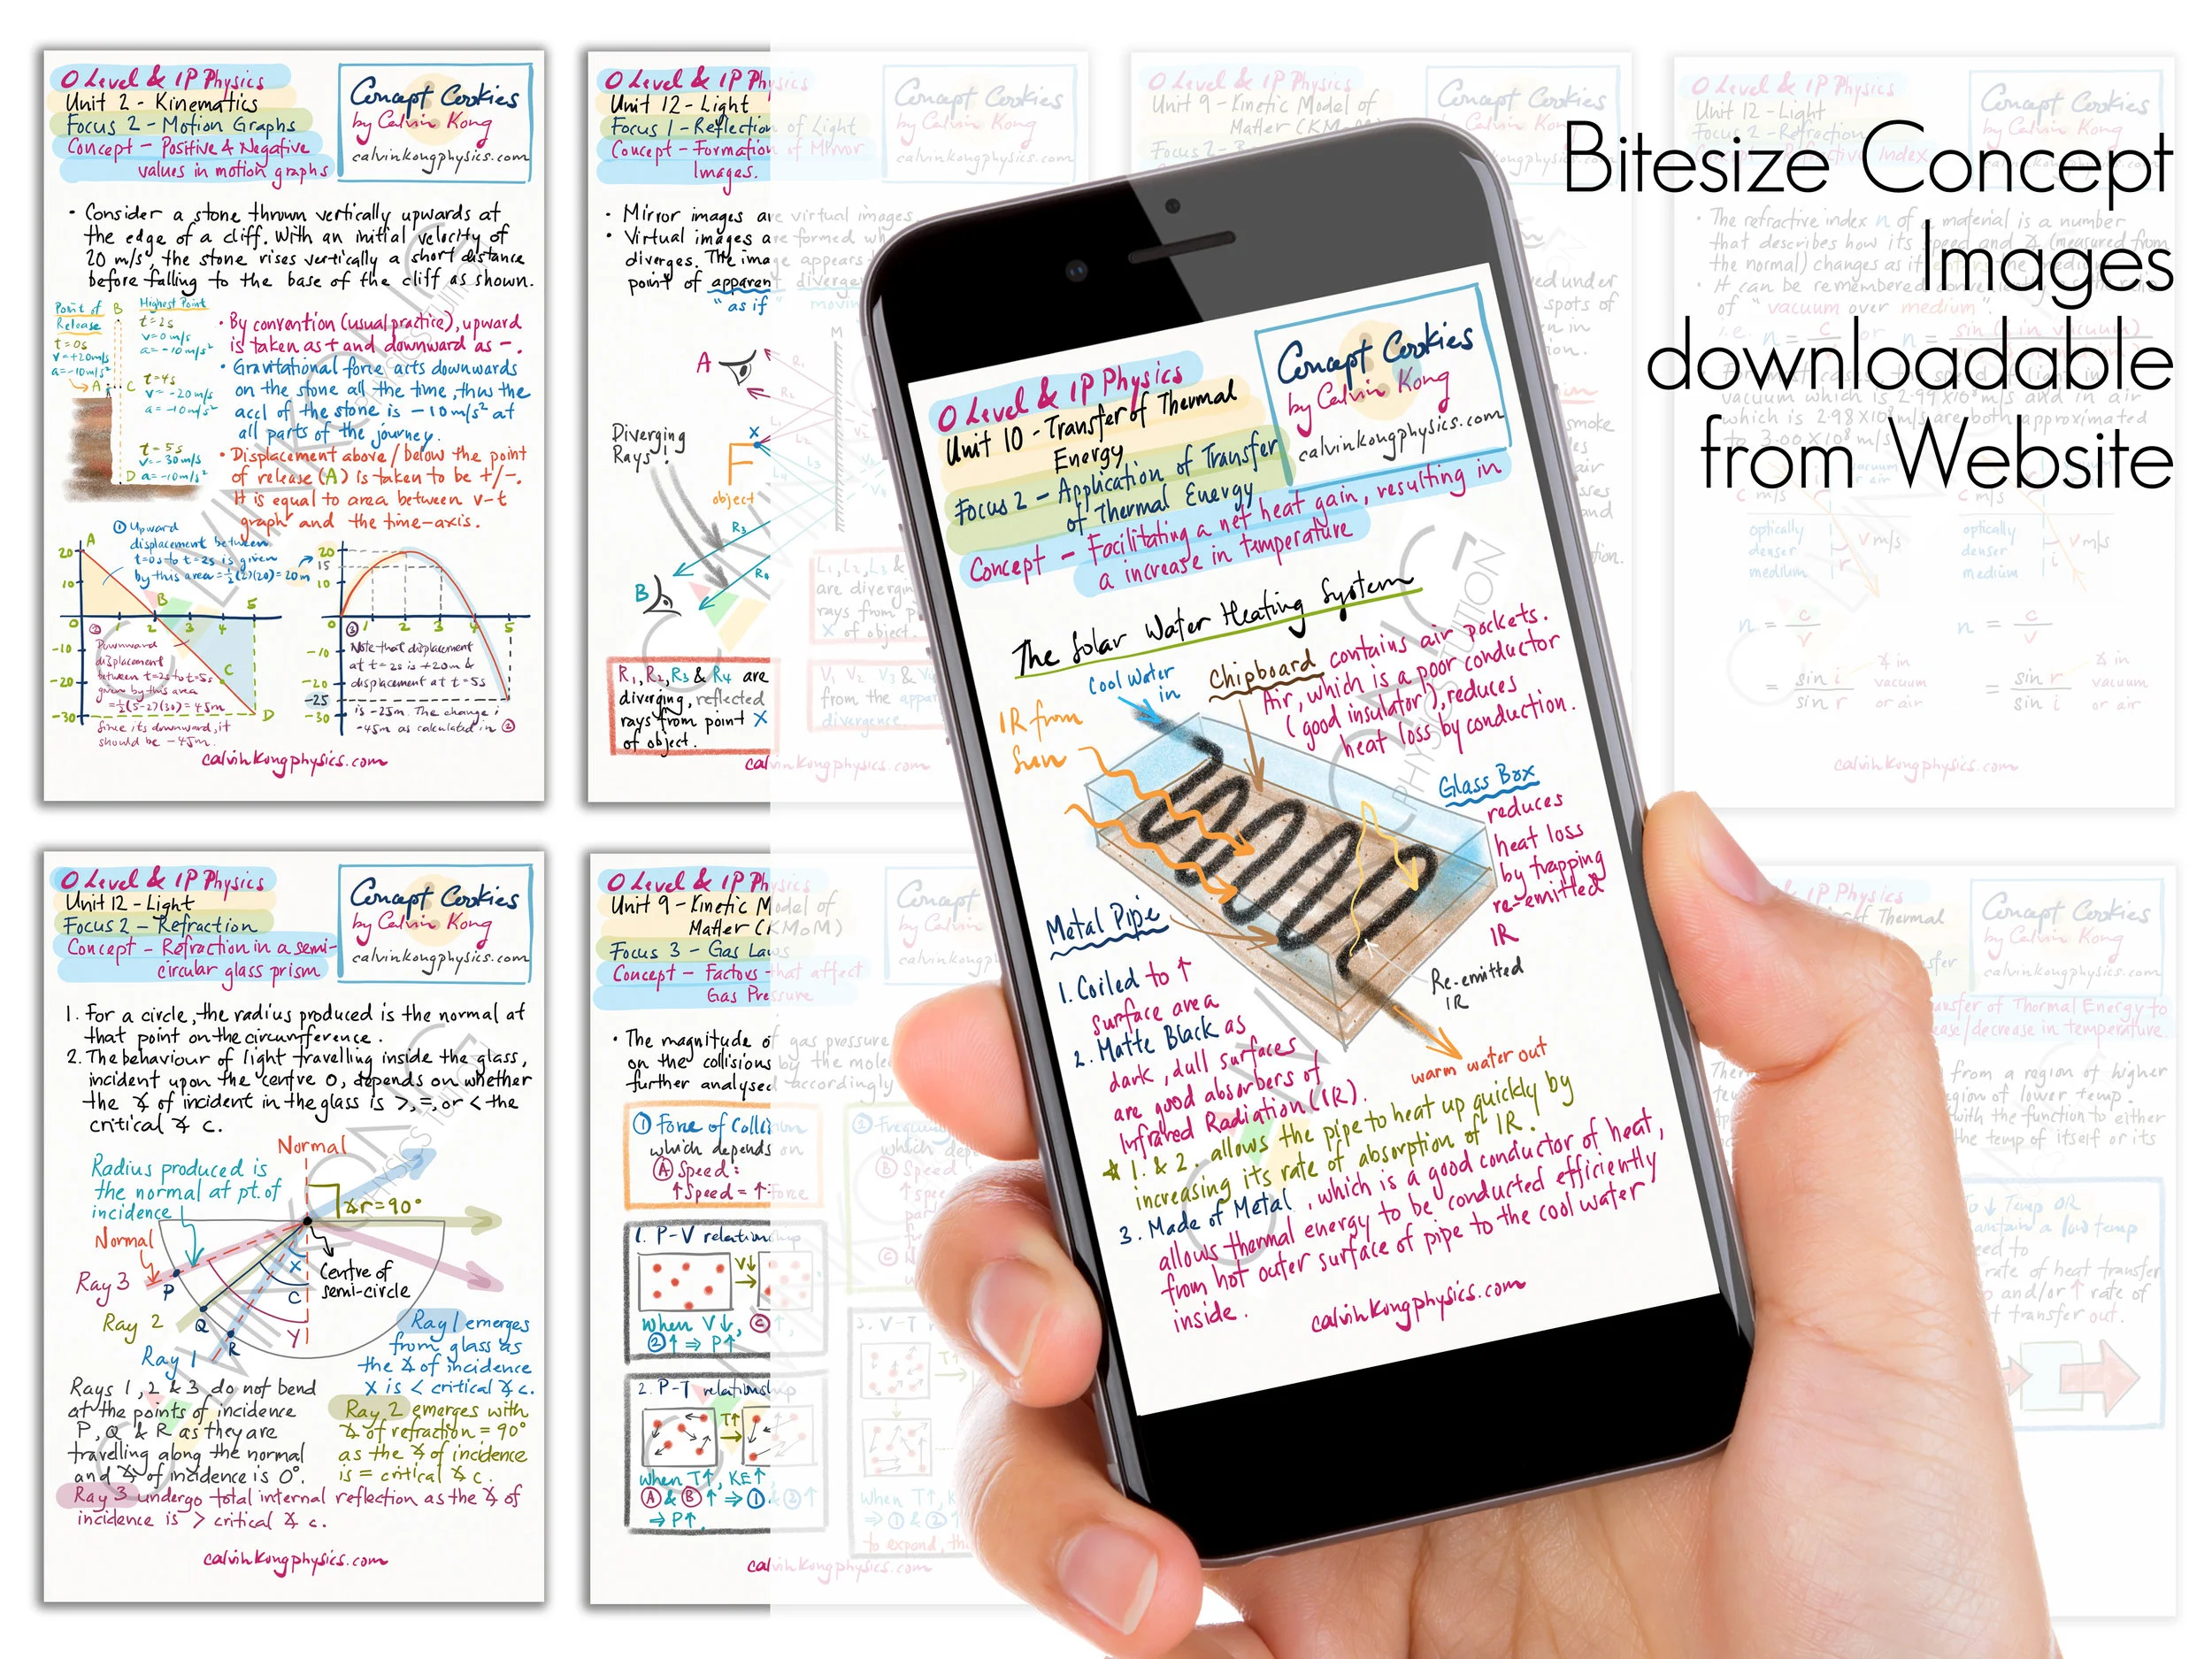 O Level & IP Physics
Unit 2 - Kinematics
Focus 2 - Motion Graphs
Concept - Positive & Negative
values in motion graphs
Concept Cookies
by Calvin Kong
calvinkongphysics.com
• Consider a stone thrown vertically upwards at
the edge of a cliff. With an initial velocity of
20 m/s, the stone rises vertically a short distance
before falling to the base of the cliff as shown.
Point of
Release
t=0s
v=+20m/s
a=-10m/s²
B
Highest Point
t=2s
v=0m/s
a=-10m/s²
A
C
t=4s
v=-20m/s
a=-10m/s²
t=5s
v=-30m/s
D a=-10m/s²
• By convention (usual practice), upward
is taken as + and downward as -.
• Gravitational force acts downwards
on the stone all the time, thus the
accl of the stone is -10m/s² at
all parts of the journey.
• Displacement above/below the point
of release (A) is taken to be +/-.
It is equal to area between v-t
graph and the time-axis.
① Upward
displacement between
t=0s to t=2s is given
by this area=½(2)(20)=20m
② Downward
displacement
between t=2s to t=5s
given by this area
=½(5-2)(30)=45m
Since its downward, it
should be -45m.
③ Note that displacement
at t=2s is +20m &
displacement at t=5s
is -25m. The change is
-45m as calculated in ②
calvinkongphysics.com
O Level & IP Physics
Unit 12 - Light
Focus 1 - Reflection of Light
Concept - Formation of Mirror
Images.
Concept Cookies
by Calvin Kong
calvinkongphysics.com
• Mirror images are virtual images
• Virtual images are formed wh
diverges. The image appears
point of apparent diverge
"as if"
A
M
Diverging
Rays!
X
object
R3
R4
B
R1, R2, R3 & R4 are
diverging, reflected
rays from point X
of object.
L1, L2, L3 &
are diverging
rays from p
X of object.
from the appar
divergence
calvinkongphysics.com
O Level & IP Physics
Unit 9 - Kinetic Model of
Matter (KMoM)
Concept Cookies
O Level & IP Physics
Unit 12 - Light
Focus 2 - Refraction
Concept - Refractive Index
Concept Cookies
by Calvin Kong
Bitesize Concept
Images
downloadable
from Website
• The refractive index n of a material is a number
that describes how its speed and ∡ (measured from
of "vacuum over medium"
optically
denser
medium
v m/s
optically
denser
medium
v m/s
n = c/v
= sin i / sin r
∡ in
vacuum
or air
n = c/v
= sin r / sin i
∡ in
vacuum
or air
calvinkongphysics.com
O Level & IP Physics
Unit 10 - Transfer of Thermal
Energy
Focus 2 - Application of Transfer
of Thermal Energy
Concept - Facilitating a net heat gain, resulting in
a increase in temperature
Concept Cookies
by Calvin Kong
calvinkongphysics.com
The Solar Water Heating System
Cool Water
in
Chipboard contains air pockets.
Air, which is a poor conductor
(good insulator), reduces
heat loss by conduction.
IR from
Sun
Glass Box
reduces
heat loss
by trapping
re-emitted
IR
Re-emitted
IR
warm water out
Metal Pipe
1. Coiled to ↑
surface area
2. Matte Black as
dark, dull surfaces
are good absorbers of
Infrared Radiation (IR).
* 1. & 2. allows the pipe to heat up quickly by
increasing its rate of absorption of IR.
3. Made of Metal, which is a good conductor of heat,
allows thermal energy to be conducted efficiently
from hot outer surface of pipe to the cool water
inside.
calvinkongphysics.com
O Level & IP Physics
Unit 12 - Light
Focus 2 - Refraction
Concept - Refraction in a semi-
circular glass prism
Concept Cookies
by Calvin Kong
calvinkongphysics.com
1. For a circle, the radius produced is the normal at
that point on the circumference.
2. The behaviour of light travelling inside the glass,
incident upon the centre O, depends on whether
the ∡ of incident in the glass is >, =, or < the
critical ∡ c.
Normal
Radius produced is
the normal at pt. of
incidence
∡r=90°
Normal
Ray 3
P
X
C
Y
Centre of
semi-circle
Ray 2
Q
R
Ray 1
Ray 1 emerges
from glass as
the ∡ of incidence
X is < critical ∡ c.
Rays 1, 2 & 3 do not bend
at the points of incidence
P, Q & R as they are
travelling along the normal
and ∡ of incidence is 0°.
Ray 2 emerges with
∡ of refraction = 90°
as the ∡ of incidence
is = critical ∡ c.
Ray 3 undergo total internal reflection as the ∡ of
incidence is > critical ∡ c.
calvinkongphysics.com
O Level & IP Physics
Unit 9 - Kinetic Model of
Matter (KMoM)
Focus 3 - Gas Laws
Concept - Factors that affect
Gas Pressure
Concept
by Calvin
calvinkon
• The magnitude of gas pressure
on the collisions by the mole
further analysed accordingly
① Force of Collision
which depends on
Ⓐ Speed:
↑Speed = ↑Force
1. P-V relationship
V↓
When V↓, Ⓒ
②↑ ⇒ P↑
2. P-T relationship
T↑
When T↑, KE↑
Ⓐ & Ⓑ ↑ ⇒ ① & ②↑
⇒ P↑
3. V-T
When T↑, K
to expand, th
calvinkongphysics.com
Concept Cookies
by Calvin Kong
calvinkongphysics.com
from a region of higher
gion of lower temp.
with the function to either
the temp of itself or its
rate of heat transfer
and/or ↑ rate of
t transfer out.